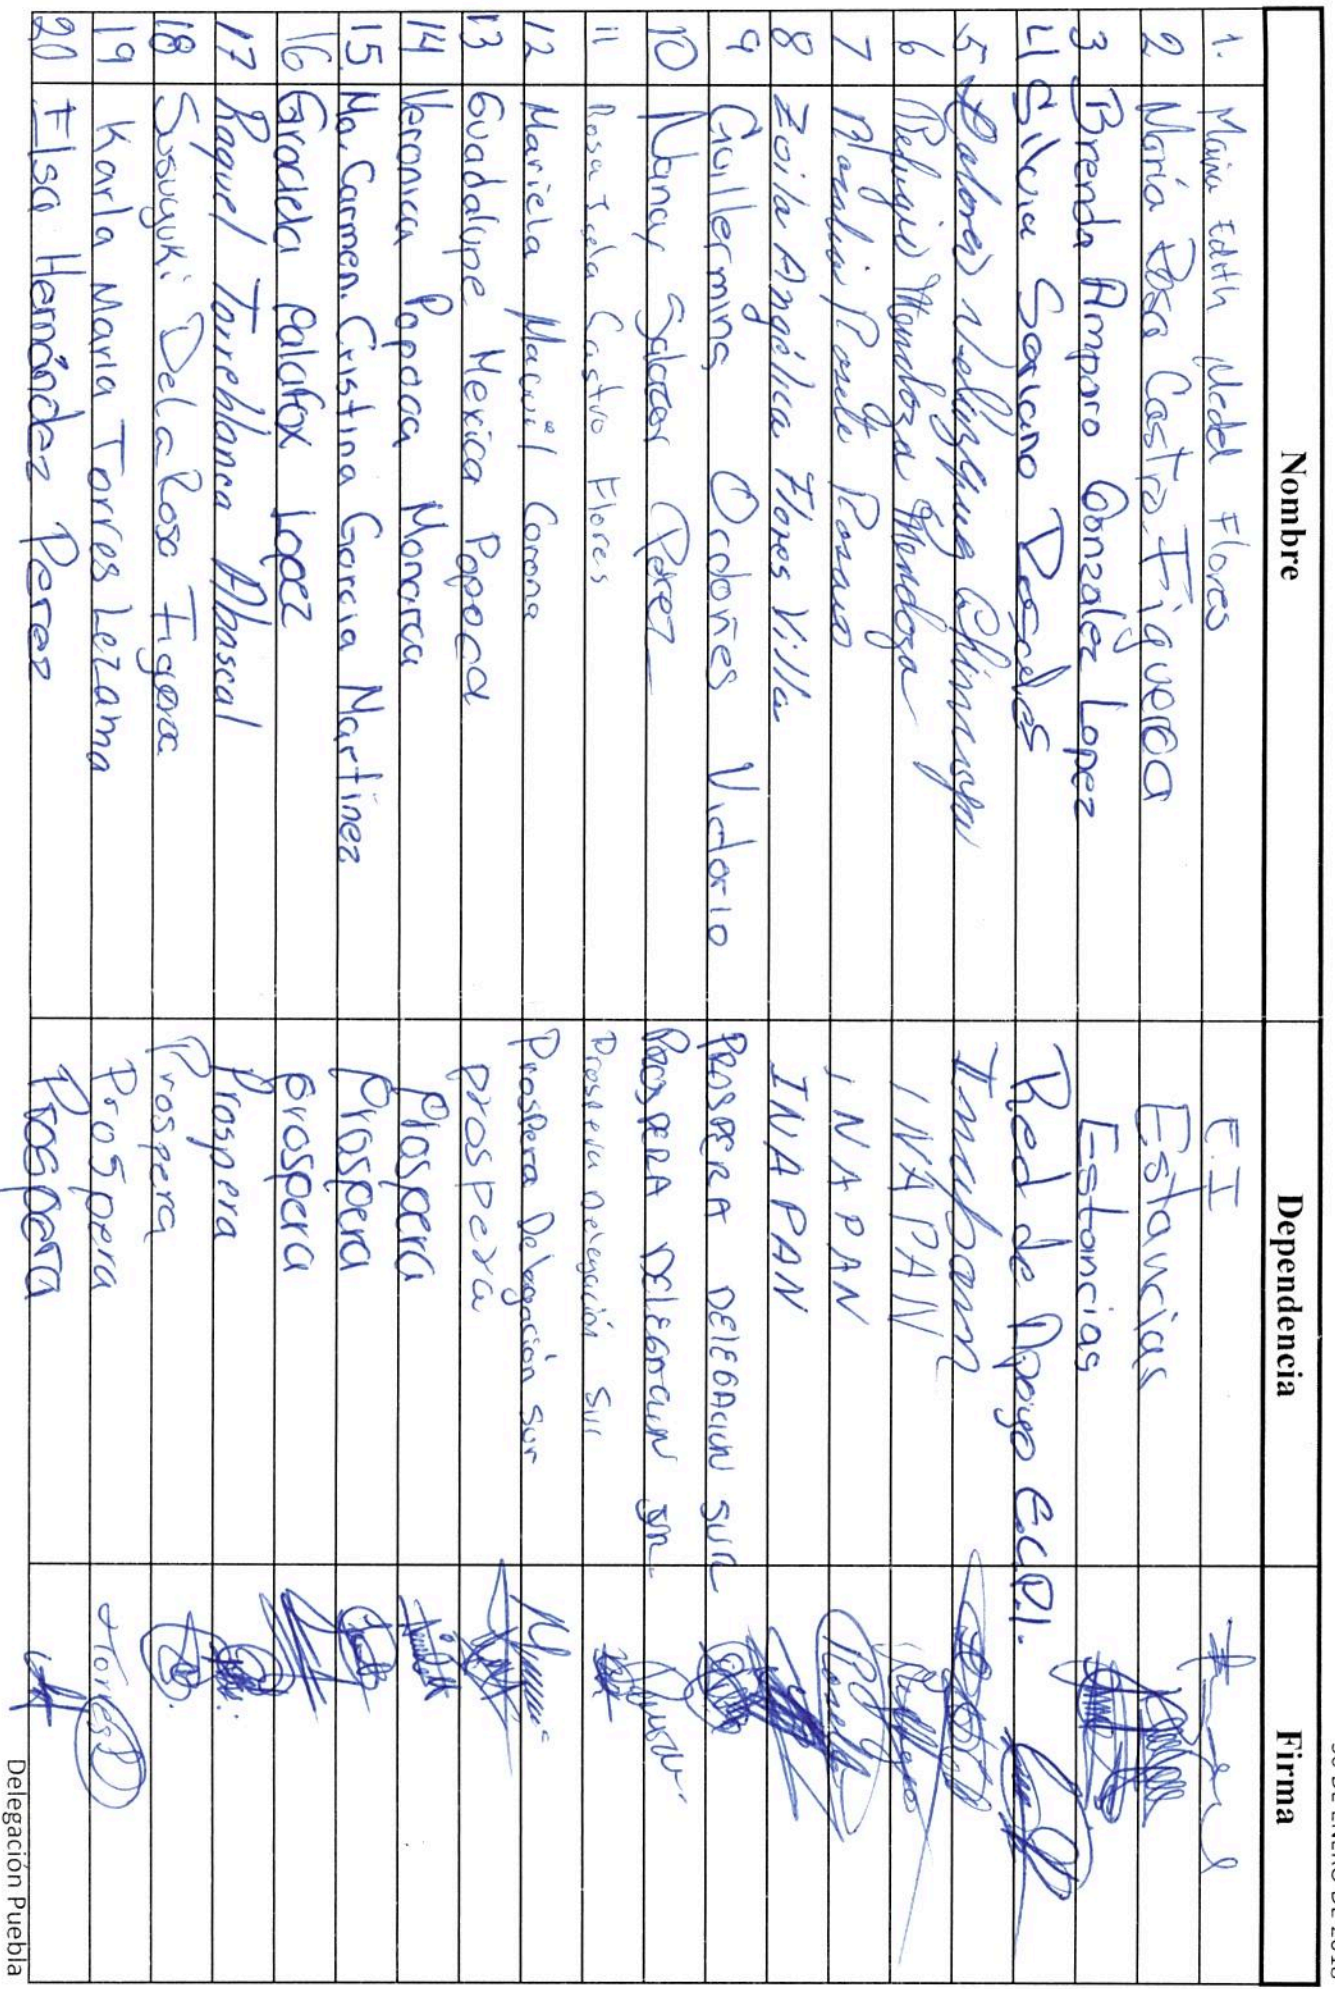 Nombre Dependencia Firma
1. Maira Edith Medel Flores E.I
2 María Rosa Castro Figueroa Estancias
3 Brenda Amparo Gonzalez Lopez Estancias
4 Silvia Soriano Rosales Red de Apoyo E.C.P.I.
5 Dolores
6 Refugio Mendoza Mendoza INAPAN
7 INAPAN
8 Zoila Angélica Flores Villa INAPAN
9 Guillermina Ordoñes Victorio PROSPERA DELEGACION SUR
10 Nancy Salazar Perez PROSPERA DELEGACION SUR
11 Rosa Isela Castro Flores Prospera Delegación Sur
12 Mariela Macuil Corona Prospera Delegación Sur
13 Guadalupe Mexica Popoca Prospera
14 Veronica Popoca Monarca Prospera
15 Ma. Carmen. Cristina Garcia Martinez Prospera
16 Graciela Palafox Lopez Prospera
17 Raquel Torreblanca Abascal Prospera
18 Sasuyuki De La Rosa Prospera
19 Karla Maria Torres Lezama Prospera Torres
20 Elsa Hernández Perez Prospera
Delegación Puebla